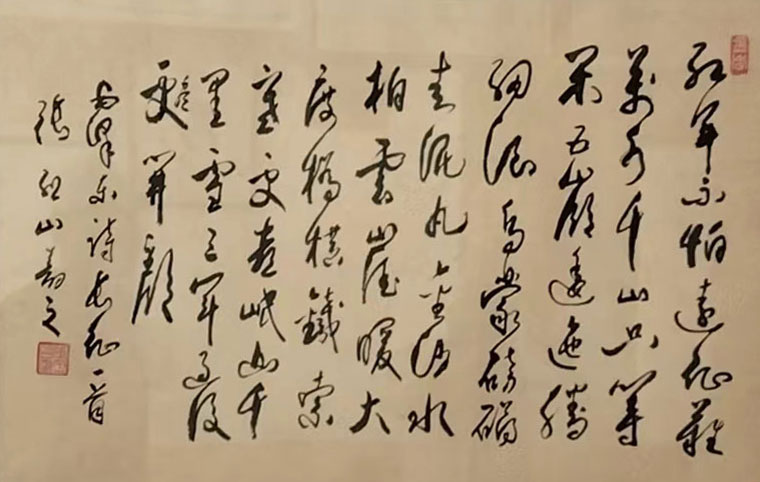 紅軍不怕遠征難
萬水千山只等
閑五嶺逶迤騰
細浪烏蒙磅礴
走泥丸金沙水
拍雲崖暖大
渡橋橫鐵索
寒更喜岷山千
里雪三軍過後
盡更開顏
毛澤東詩長征一首
張紅山書之